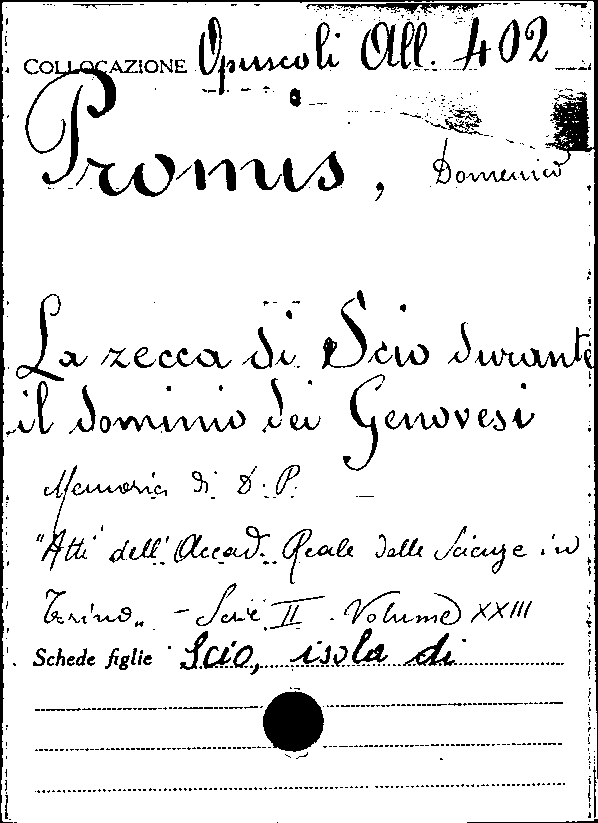 COLLOCAZIONE Opuscoli All. 402
Promis, Domenico
La zecca di Scio durante
il dominio dei Genovesi
Memoria di D. P.
"Atti dell'Accad. Reale delle Scienze in
Torino„ - Serie II. Volume XXIII
Schede figlie Scio, isola di